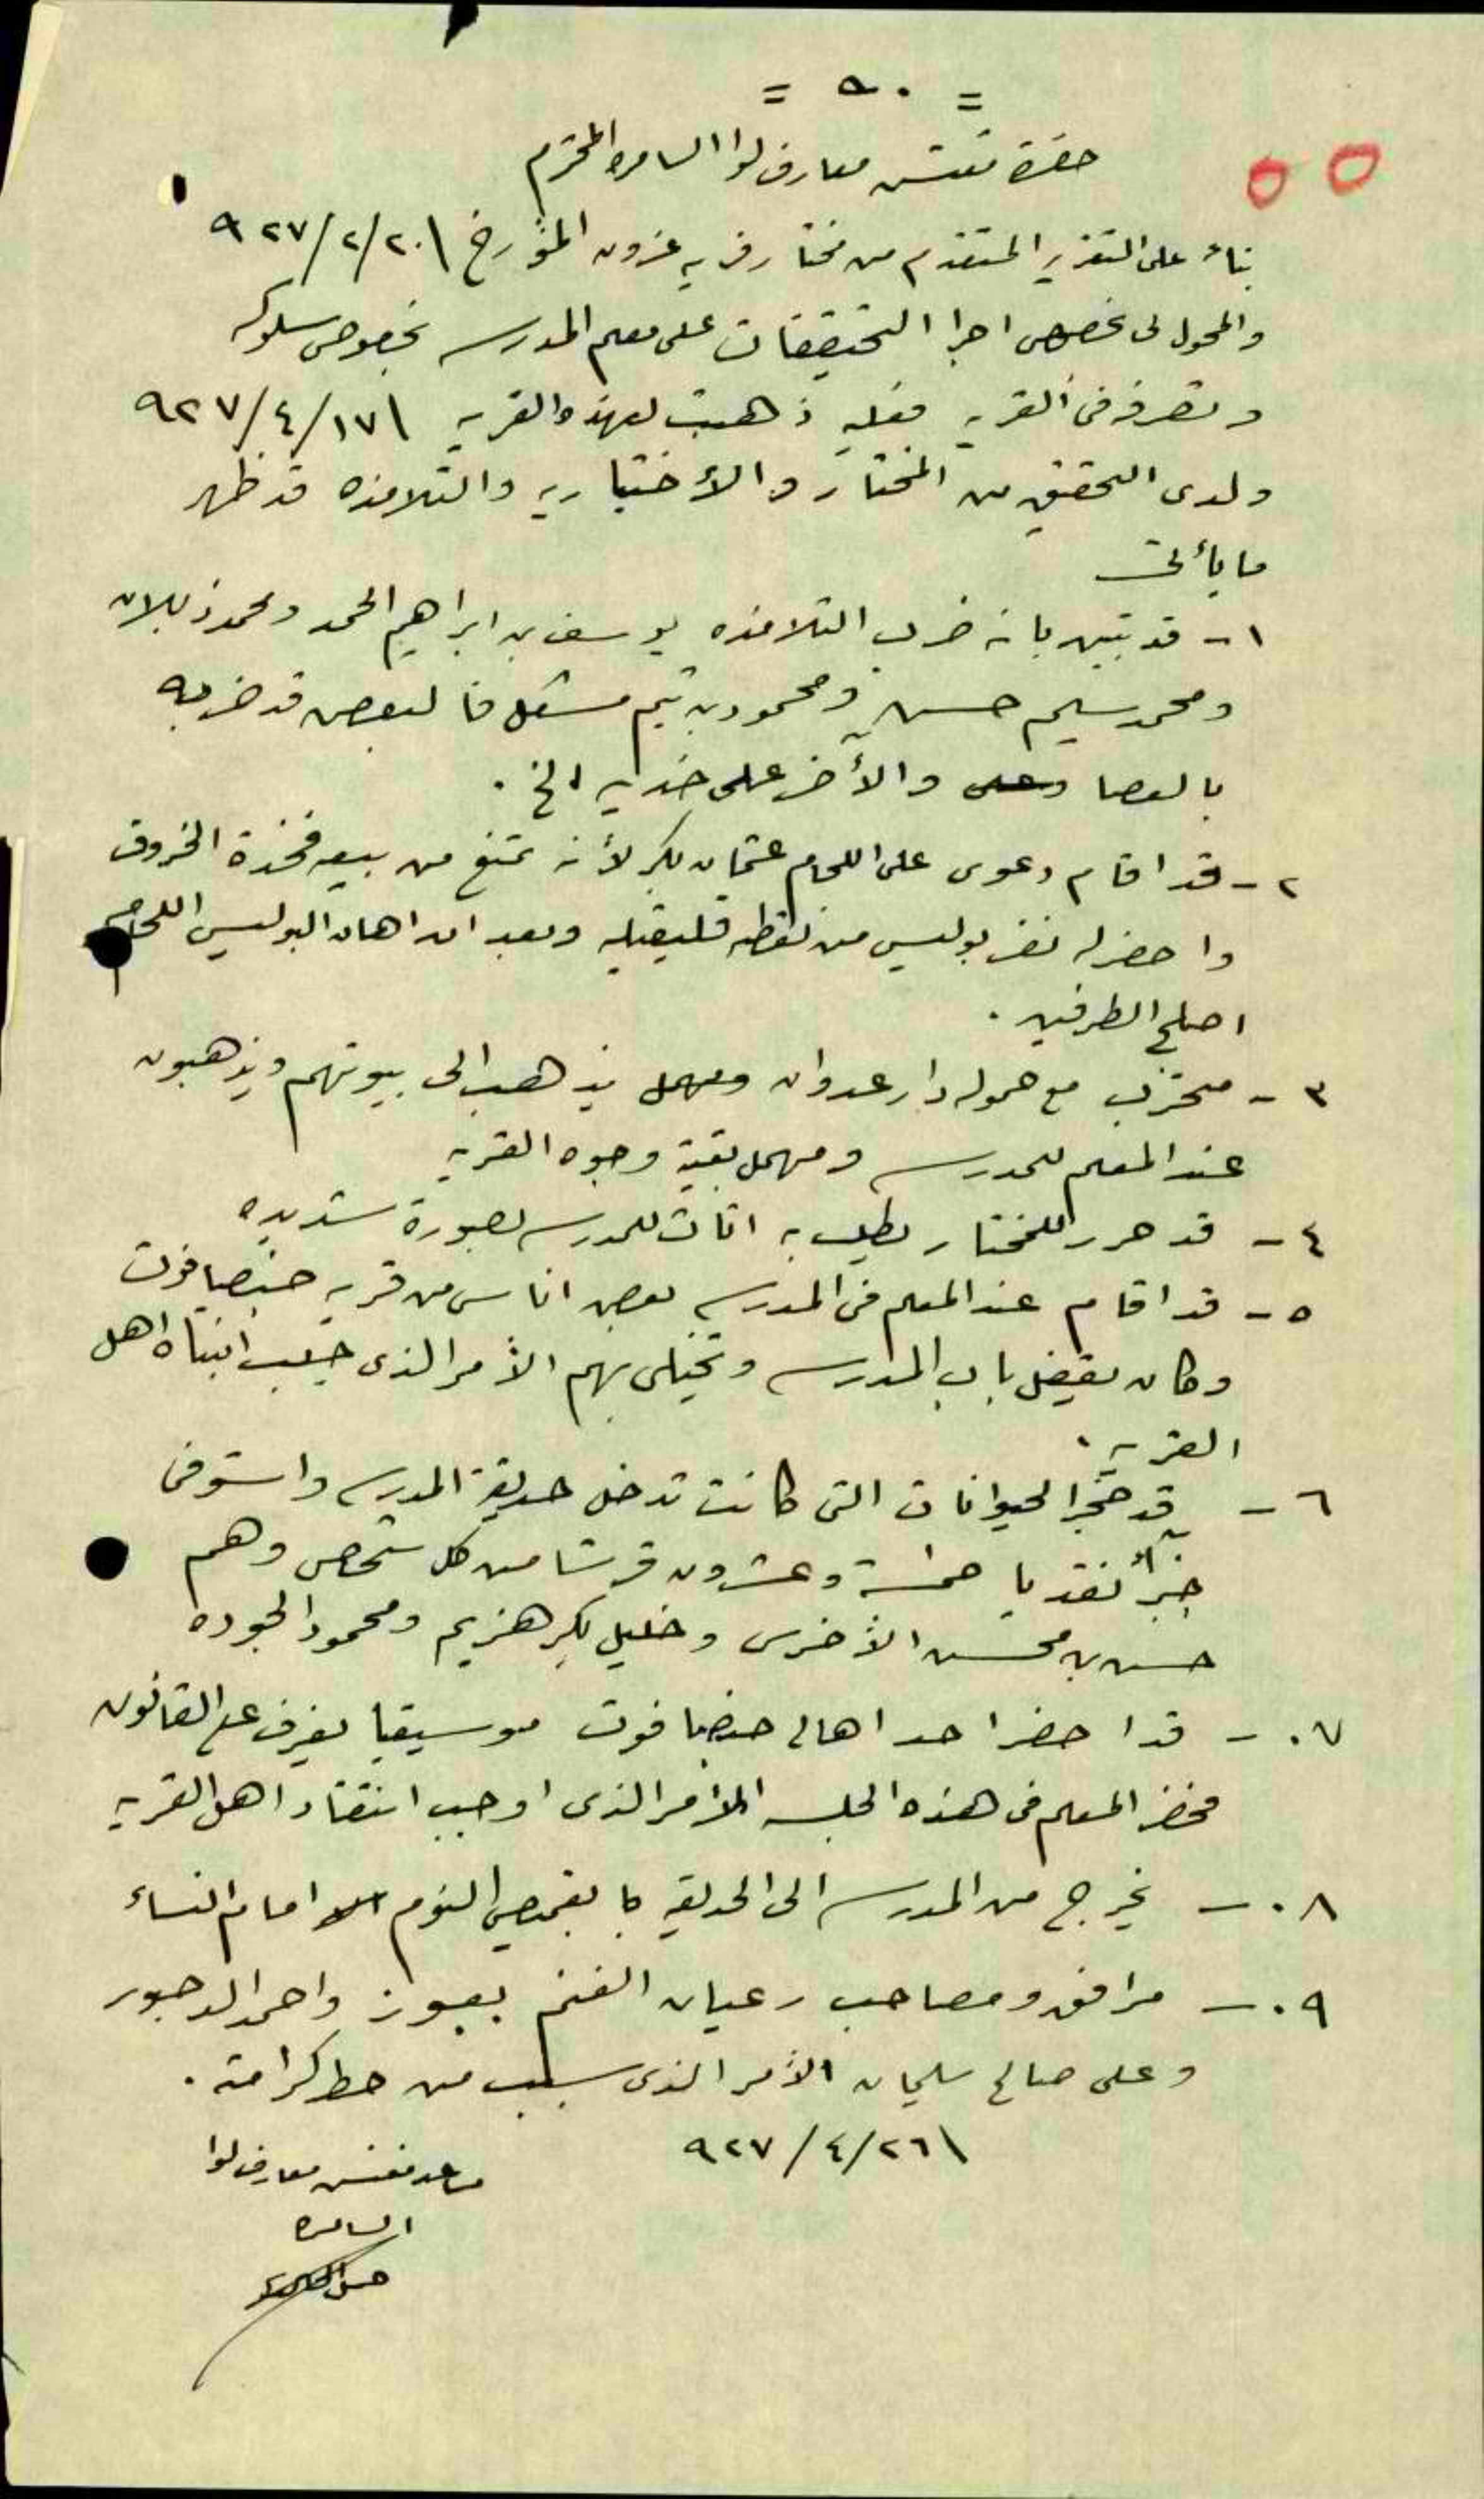 = ٩٠ =
٥٥
حضرة مفتش معارف لوا السامره المحترم
بناءً على التقرير المتقدم من مختار قريه عزون المؤرخ ٢٠/٢/٩٢٧
والمحول لي بخصوص اجرا التحقيقات على معلم المدرسه بخصوص سلوكه
وتصرفه في القريه فعليه ذهبت لهذه القريه ١٧/٤/٩٢٧
ولدى التحقيق من المختار والأختياريه والتلامذه قد ظهر
ما يأتي
١- قد تبين بانه ضرب التلامذه يوسف بن ابراهيم الحمد ومحمد زبلان
ومحمد سليم حسن ومحمود بن تيم مشعل فالبعض قد ضربه
بالعصا والأخر على خديه الخ .
٢- قد اقام دعوى على اللحام عثمان بكر لأنه تمنع من بيعه فخذة الخروف
واحضر له نفر بوليس من نقطه قلقيليه وبعد ان اهان البوليس اللحام
اصلح الطرفين .
٣- متحزب مع حموله دار عدوان يذهب الى بيوتهم ويذهبون
عند المعلم للمدرسه ومهمل بقية وجوه القريه
٤- قد حرر للمختار بطلب اثاث للمدرسه بصورة شديده
٥- قد اقام عند المعلم في المدرسه بعض اناس من قريه جينصافوت
وكان يقفل باب المدرسه ويختلى بهم الأمر الذى جلب انتباه اهل
القريه .
٦- قد حجز الحيوانات التى كانت تدخل حديقة المدرسه واستوفى
جزأً نقديا خمسة وعشرون قرشا من كل شخص وهم
حسن بن محسن الأخرس وخليل بكر هزيم ومحمود الجوده
٧٠- قد احضر احد اهالى جينصافوت موسيقيا يعزف على القانون
فحضر المعلم فى هذه الجلسه الأمر الذى اوجب انتقاد اهل القريه
٨٠- يخرج من المدرسه الى الحديقه بقميص النوم امام النساء
٩٠- مرافق ومصاحب رعيان الغنم واحمد الدحبور
وعلى صالح سليمان الأمر الذى سبب من حط كرامته .
٢٦/٤/٩٢٧
مساعد مفتش معارف لوا
السامره